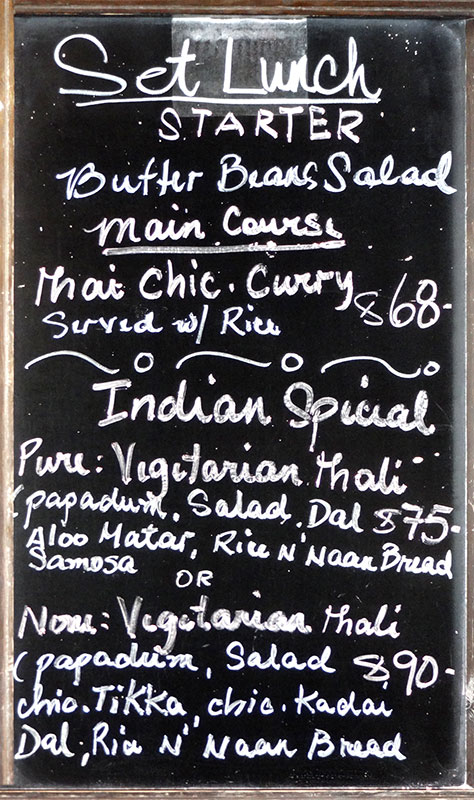 Set Lunch
STARTER
Butter Beans Salad
Main Course
Thai Chic. Curry $68-
Served w/ Rice
Indian Special
Pure: Vegitarian Thali
(papadum, Salad, Dal $75-
Aloo Matar, Rice N' Naan Bread
Samosa
OR
None: Vegitarian Thali
(papadum, Salad $90-
chic. TiKKa, chic. Kadai
Dal, Rice N' Naan Bread